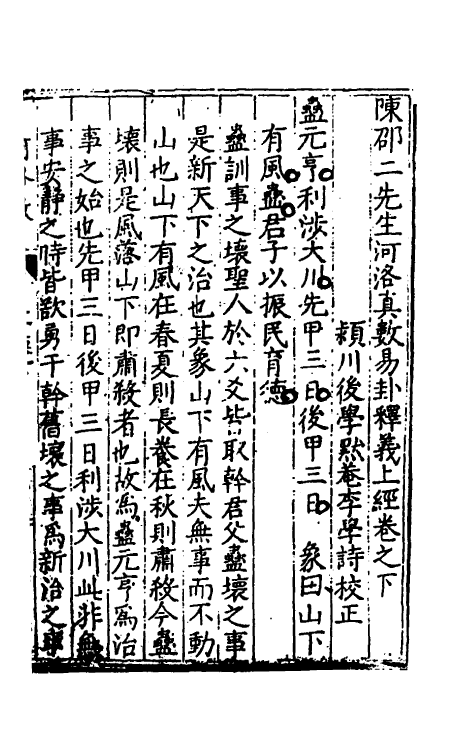 陳邵二先生河洛真數易卦釋義上經卷之下
穎川後學默菴李學詩校正
蠱元亨利涉大川先甲三日後甲三日 象曰山下
有風蠱君子以振民育德
蠱訓事之壞聖人於六爻皆取幹君父蠱壞之事
是新天下之治也其象山下有風夫無事而不動
山也山下有風在春夏則長養在秋則肅殺今蠱
壞則是風落山下即肅殺者也故為蠱元亨為治
事之始也先甲三日後甲三日利涉大川此非無
事安靜之時皆欲勇于幹舊壞之事爲新治之事